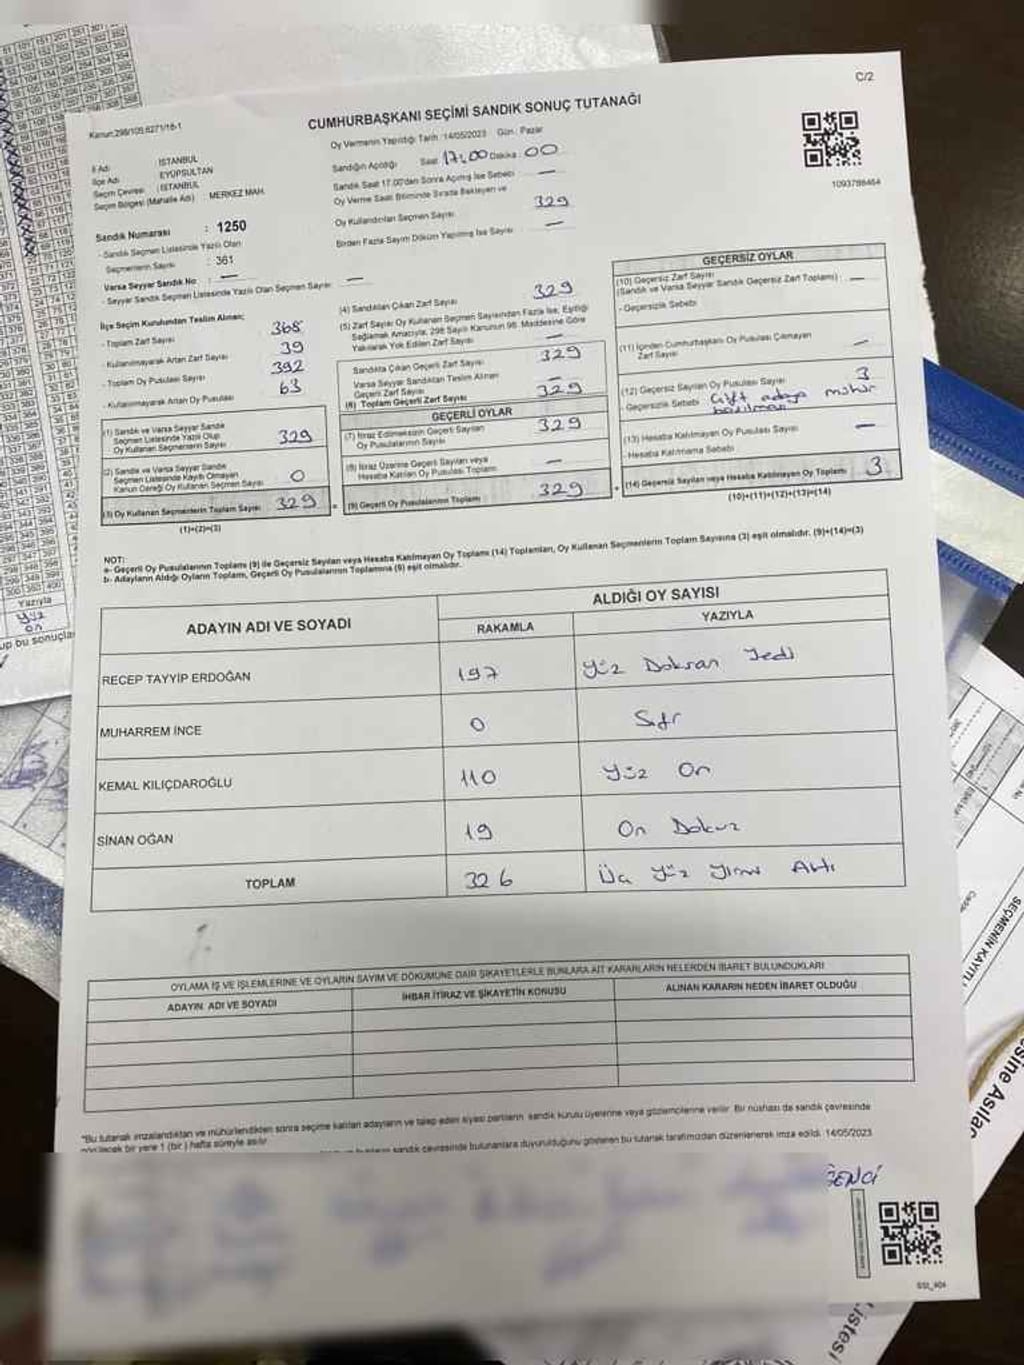 C/2
Kanun:298/105,6271/16-1
CUMHURBAŞKANI SEÇİMİ SANDIK SONUÇ TUTANAĞI
Oy Vermenin Yapıldığı Tarih :14/05/2023 Gün : Pazar
İl Adı : İSTANBUL
İlçe Adı : EYÜPSULTAN
Seçim Çevresi : İSTANBUL
Seçim Bölgesi (Mahalle Adı) : MERKEZ MAH.
Sandık Numarası : 1250
- Sandık Seçmen Listesinde Yazılı Olan
Seçmenlerin Sayısı : 361
Varsa Seyyar Sandık No : —
- Seyyar Sandık Seçmen Listesinde Yazılı Olan Seçmen Sayısı : —
Sandığın Açıldığı Saat 17:00 Dakika : 00
Sandık Saat 17.00'den Sonra Açılmış İse Sebebi : —
Oy Verme Saati Bitiminde Sırada Bekleyen ve
Oy Kullandırılan Seçmen Sayısı 329
Birden Fazla Sayım Döküm Yapılmış İse Sayısı : —
1093786464
İlçe Seçim Kurulundan Teslim Alınan;
- Toplam Zarf Sayısı : 368
- Kullanılmayarak Artan Zarf Sayısı : 39
- Toplam Oy Pusulası Sayısı : 392
- Kullanılmayarak Artan Oy Pusulası : 63
(1) Sandık ve Varsa Seyyar Sandık
Seçmen Listesinde Yazılı Olup
Oy Kullanan Seçmenlerin Sayısı 329
(2) Sandık ve Varsa Seyyar Sandık
Seçmen Listesinde Kayıtlı Olmayan
Kanun Gereği Oy Kullanan Seçmen Sayısı 0
(3) Oy Kullanan Seçmenlerin Toplam Sayısı 329
(1)+(2)=(3)
(4) Sandıktan Çıkan Zarf Sayısı 329
(5) Zarf Sayısı Oy Kullanan Seçmen Sayısından Fazla İse, Eşitliği
Sağlamak Amacıyla, 298 Sayılı Kanunun 98. Maddesine Göre
Yakılarak Yok Edilen Zarf Sayısı —
Sandıkta Çıkan Geçerli Zarf Sayısı 329
Varsa Seyyar Sandıktan Teslim Alınan
Geçerli Zarf Sayısı —
(6) Toplam Geçerli Zarf Sayısı 329
GEÇERLİ OYLAR
(7) İtiraz Edilmeksizin Geçerli Sayılan
Oy Pusulalarının Sayısı 329
(8) İtiraz Üzerine Geçerli Sayılan veya
Hesaba Katılan Oy Pusulası Toplamı —
(9) Geçerli Oy Pusulalarının Toplamı 329
GEÇERSİZ OYLAR
(10) Geçersiz Zarf Sayısı
(Sandık ve Varsa Seyyar Sandık Geçersiz Zarf Toplamı) —
- Geçersizlik Sebebi
(11) İçinden Cumhurbaşkanı Oy Pusulası Çıkmayan
Zarf Sayısı —
(12) Geçersiz Sayılan Oy Pusulası Sayısı 3
- Geçersizlik Sebebi Çift adaya mühür
basılması
(13) Hesaba Katılmayan Oy Pusulası Sayısı —
- Hesaba Katılmama Sebebi
(14) Geçersiz Sayılan veya Hesaba Katılmayan Oy Toplamı 3
(10)+(11)+(12)+(13)=(14)
NOT:
a- Geçerli Oy Pusulalarının Toplamı (9) ile Geçersiz Sayılan veya Hesaba Katılmayan Oy Toplamı (14) Toplamları, Oy Kullanan Seçmenlerin Toplam Sayısına (3) eşit olmalıdır. (9)+(14)=(3)
b- Adayların Aldığı Oyların Toplamı, Geçerli Oy Pusulalarının Toplamına (9) eşit olmalıdır.
ADAYIN ADI VE SOYADI
ALDIĞI OY SAYISI
RAKAMLA YAZIYLA
RECEP TAYYİP ERDOĞAN 197 Yüz Doksan Yedi
MUHARREM İNCE 0 Sıfır
KEMAL KILIÇDAROĞLU 110 Yüz On
SİNAN OĞAN 19 On Dokuz
TOPLAM 326 Üç Yüz Yirmi Altı
OYLAMA İŞ VE İŞLEMLERİNE VE OYLARIN SAYIM VE DÖKÜMÜNE DAİR ŞİKAYETLERLE BUNLARA AİT KARARLARIN NELERDEN İBARET BULUNDUKLARI
ADAYIN ADI VE SOYADI İHBAR İTİRAZ VE ŞİKAYETİN KONUSU ALINAN KARARIN NEDEN İBARET OLDUĞU
*Bu tutanak imzalandıktan ve mühürlendikten sonra seçime katılan adayların ve talep eden siyasi partilerin sandık kurulu üyelerine veya gözlemcilerine verilir. Bir nüshası da sandık çevresinde
görülecek bir yere 1 (bir) hafta süreyle asılır.
sandık çevresinde bulunanlara duyurulduğunu gösteren bu tutanak tarafımızdan düzenlenerek imza edildi. 14/05/2023
Yazıyla
Yüz
On
up bu sonuçla
SEÇMENİN KAYITLI
sine Asılac
Listesi